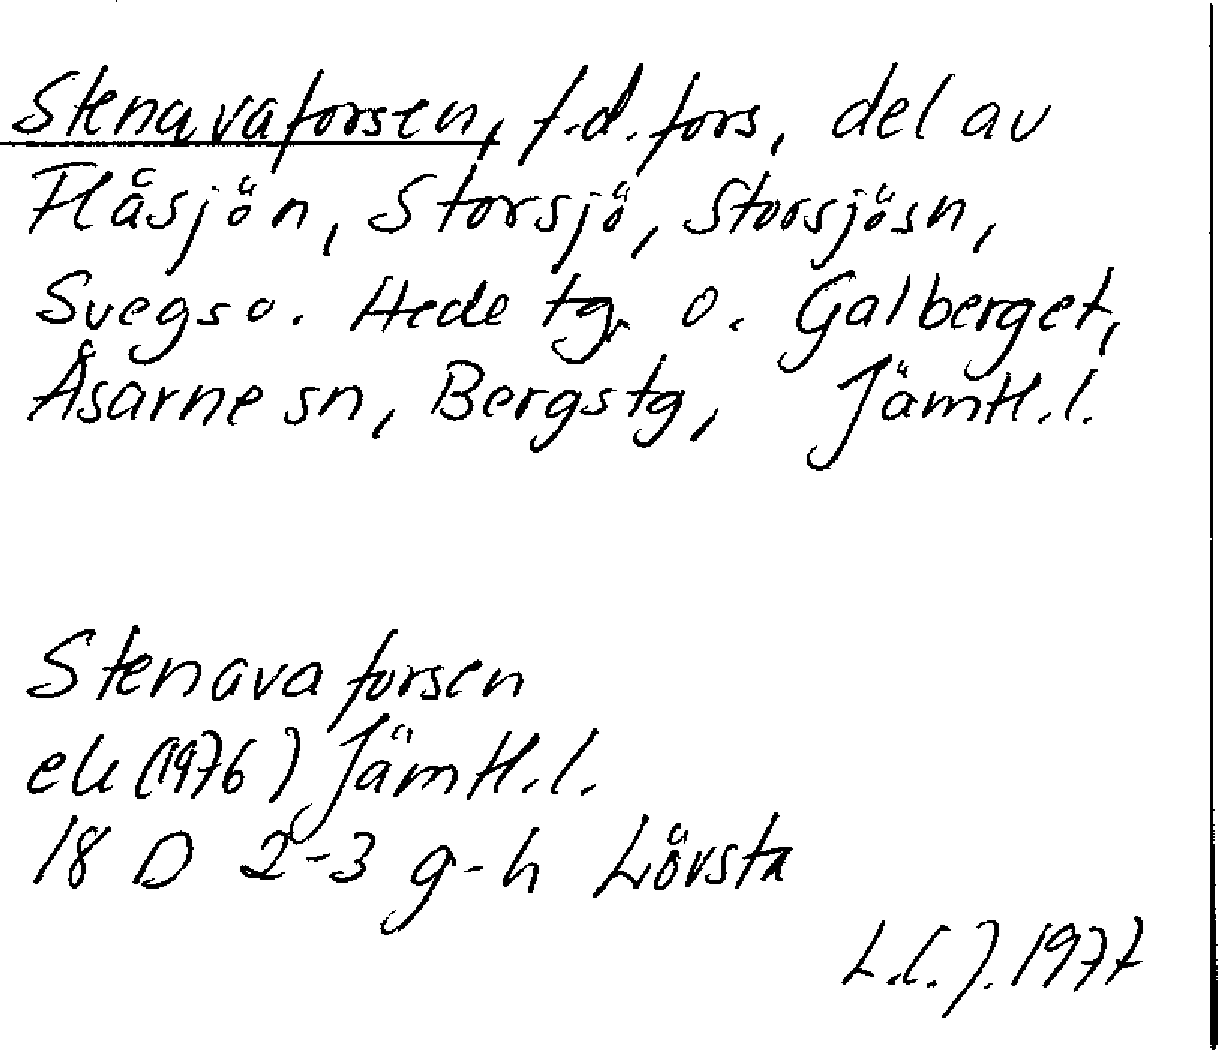 Stenavaforsen, f.d. fors, del av
Flåsjön, Storsjö, Storsjösn,
Svegs o. Hede tg. o. Galberget,
Åsarne sn, Bergs tg, Jämtl.l.
Stenavaforsen
ek (1976) Jämtl.l.
18 D 2-3 g-h Lövsta
L.C.J. 1977